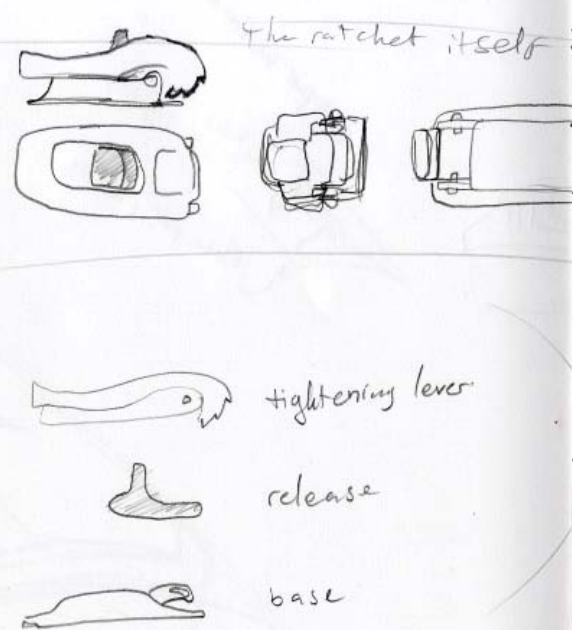 The ratchet itself :
tightening lever
release
base